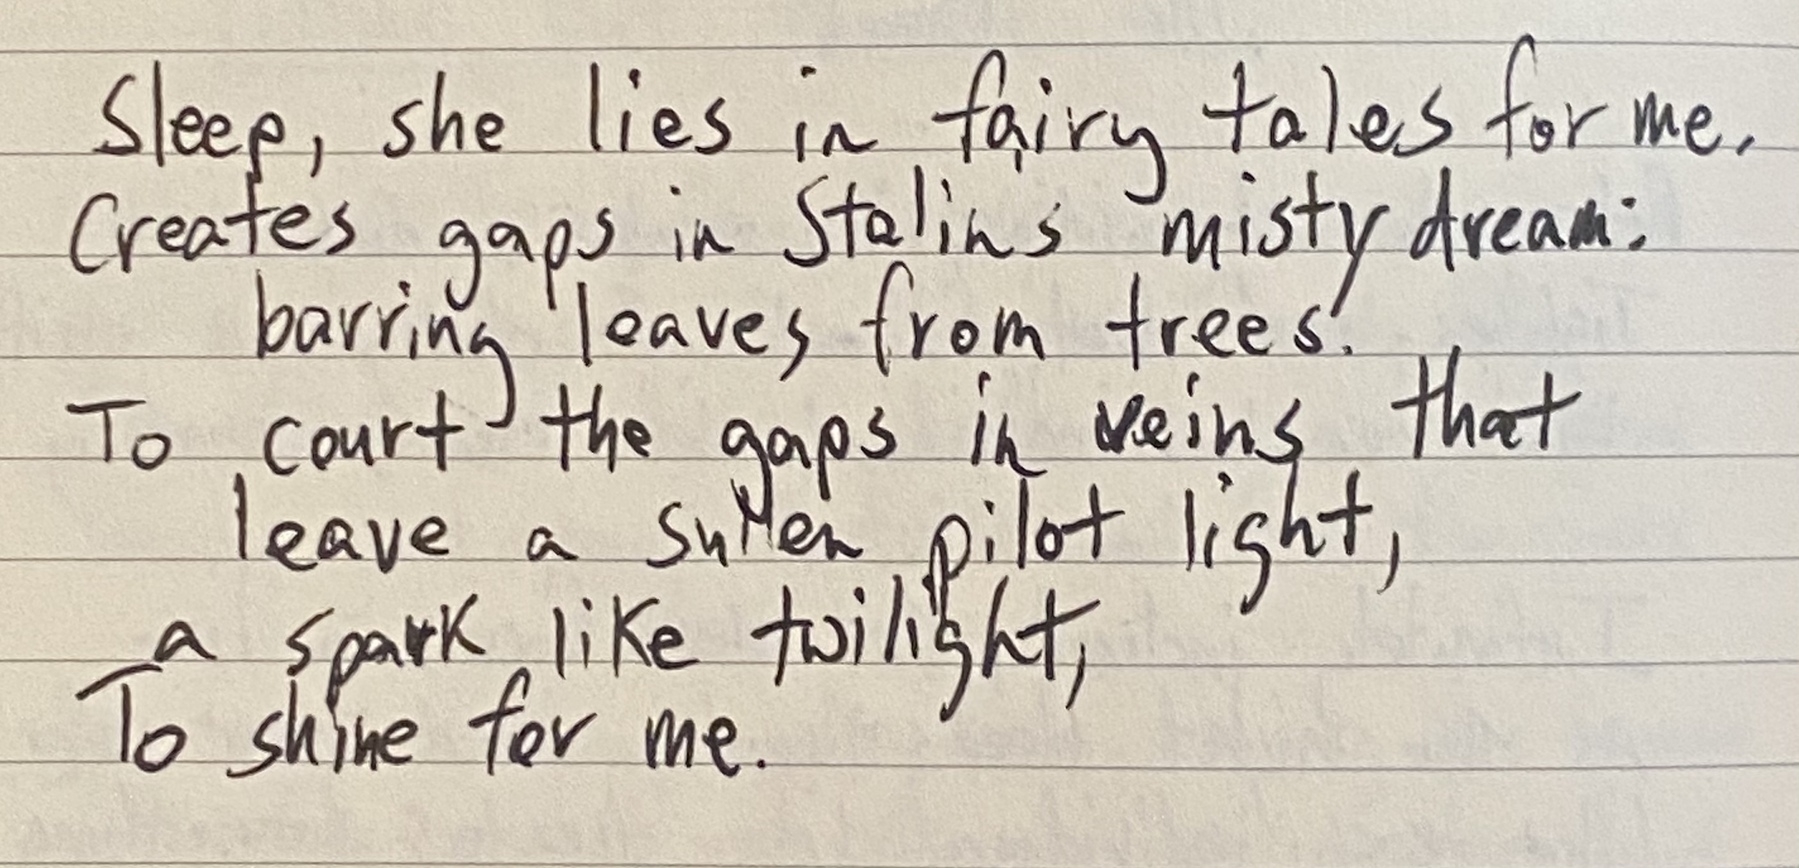 Sleep, she lies in fairy tales for me.
Creates gaps in Stalins misty dream:
barring leaves from trees.
To court the gaps in veins that
leave a sullen pilot light,
a spark like twilight,
To shine for me.